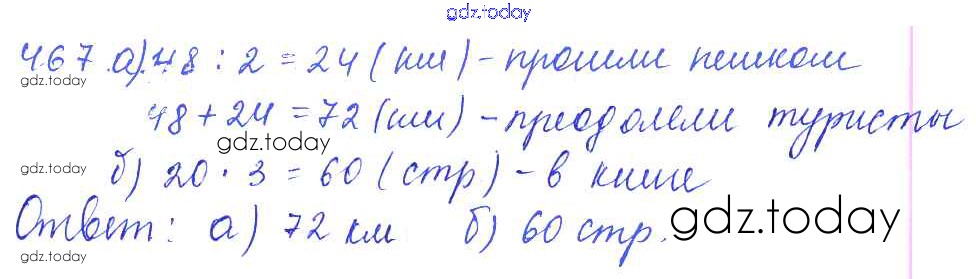 gdz.today
467 а) 48 : 2 = 24 (км) - прошли пешком
gdz.today
48 + 24 = 72 (км) - преодолели туристы
gdz.today
gdz.today б) 20 · 3 = 60 (стр) - в книге
Ответ: а) 72 км б) 60 стр. gdz.today
gdz.today